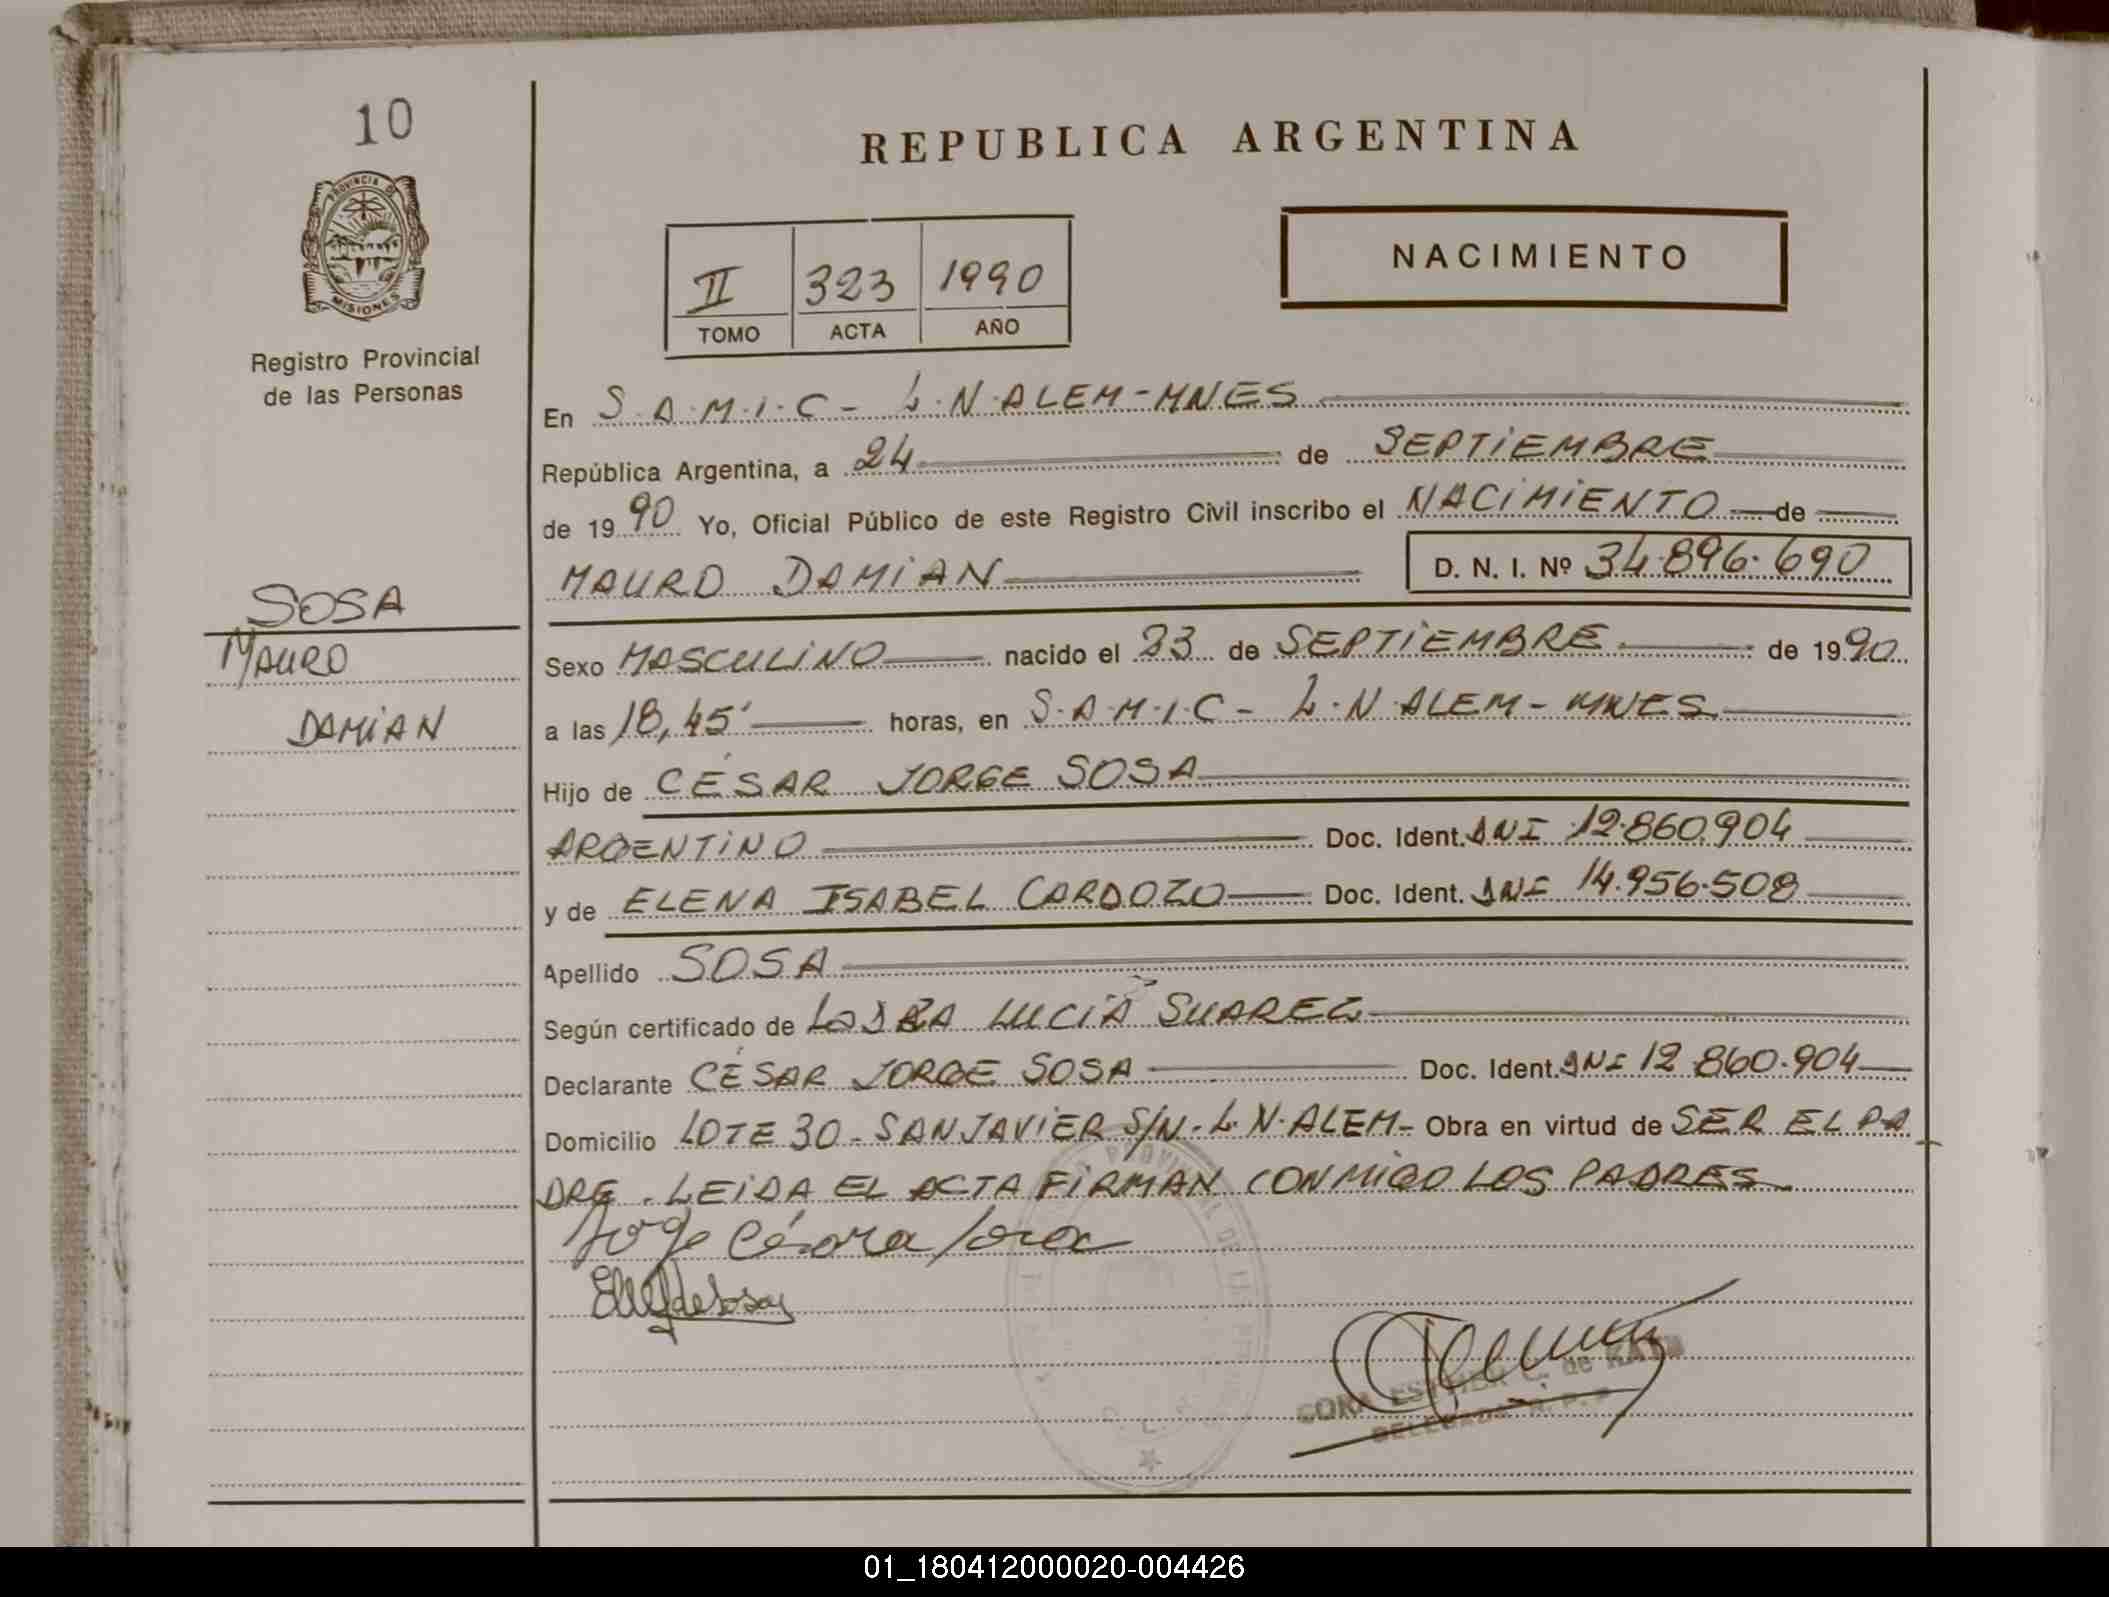 10
REPUBLICA ARGENTINA
PROVINCIA DE
MISIONES
Registro Provincial
de las Personas
II 323 1990
TOMO ACTA AÑO
NACIMIENTO
En S.A.M.I.C - L.N.ALEM-MNES
República Argentina, a 24 de SEPTIEMBRE
de 1990 Yo, Oficial Público de este Registro Civil inscribo el NACIMIENTO de
MAURO DAMIAN D. N. I. Nº 34.896.690
SOSA
MAURO
DAMIAN
Sexo MASCULINO nacido el 23 de SEPTIEMBRE de 1990
a las 18,45' horas, en S.A.M.I.C - L.N ALEM - MNES
Hijo de CÉSAR JORGE SOSA
ARGENTINO Doc. Ident. DNI 12.860.904
y de ELENA ISABEL CARDOZO Doc. Ident. DNI 14.956.508
Apellido SOSA
Según certificado de LUCIA SUAREZ
Declarante CÉSAR JORGE SOSA Doc. Ident. DNI 12 860.904
Domicilio LOTE 30 - SAN JAVIER S/N - L.N.ALEM - Obra en virtud de SER EL PA
DRE. LEIDA EL ACTA FIRMAN CONMIGO LOS PADRES
ESTHER de
DELEGADA R. P. P
01_180412000020-004426